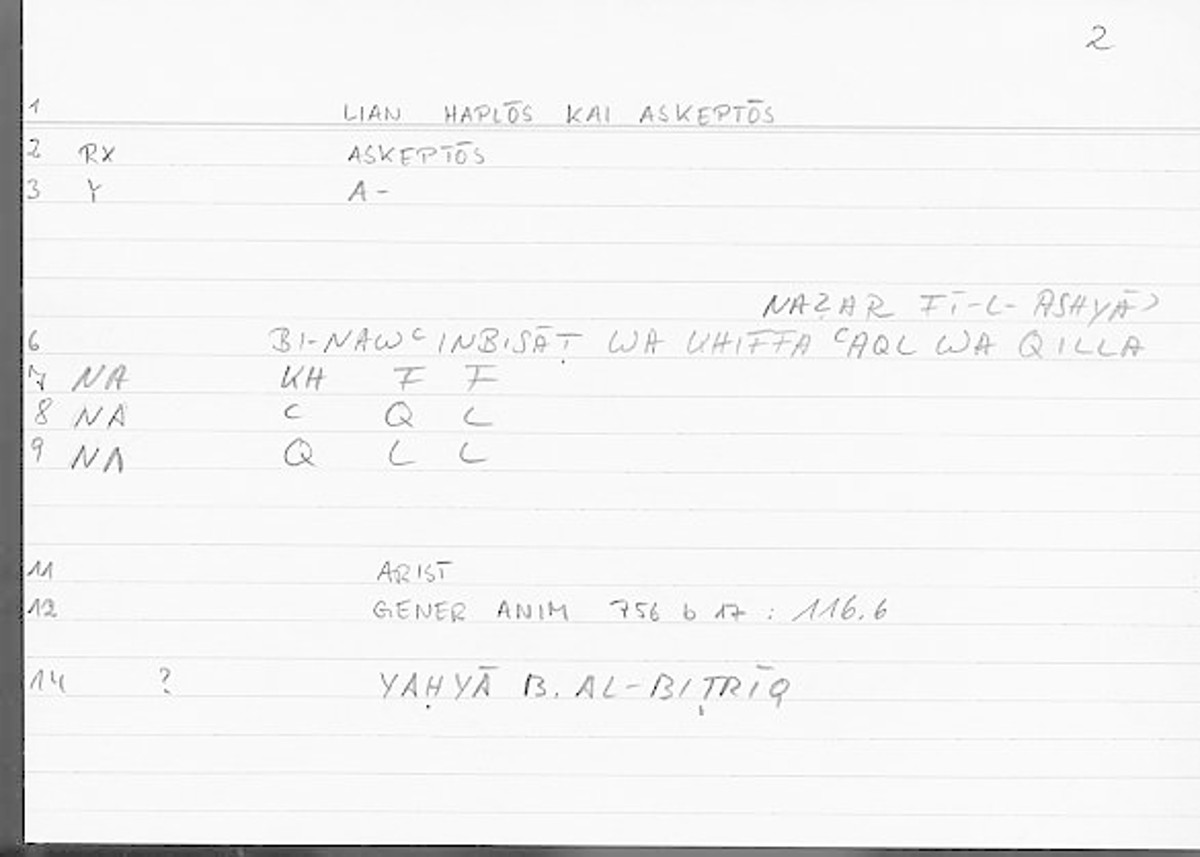 2
1 LIAN HAPLŌS KAI ASKEPTŌS
2 RX ASKEPTŌS
3 Y A-
NAẒAR FĪ-L-ASHYĀʾ
6 BI-NAWʿ INBISĀṬ WA KHIFFA ʿAQL WA QILLA
7 NA KH F F
8 NA ʿ Q L
9 NA Q L L
11 ARIST
12 GENER ANIM 756 b 17 : 116.6
14 ? YAḤYĀ B. AL-BIṬRĪQ